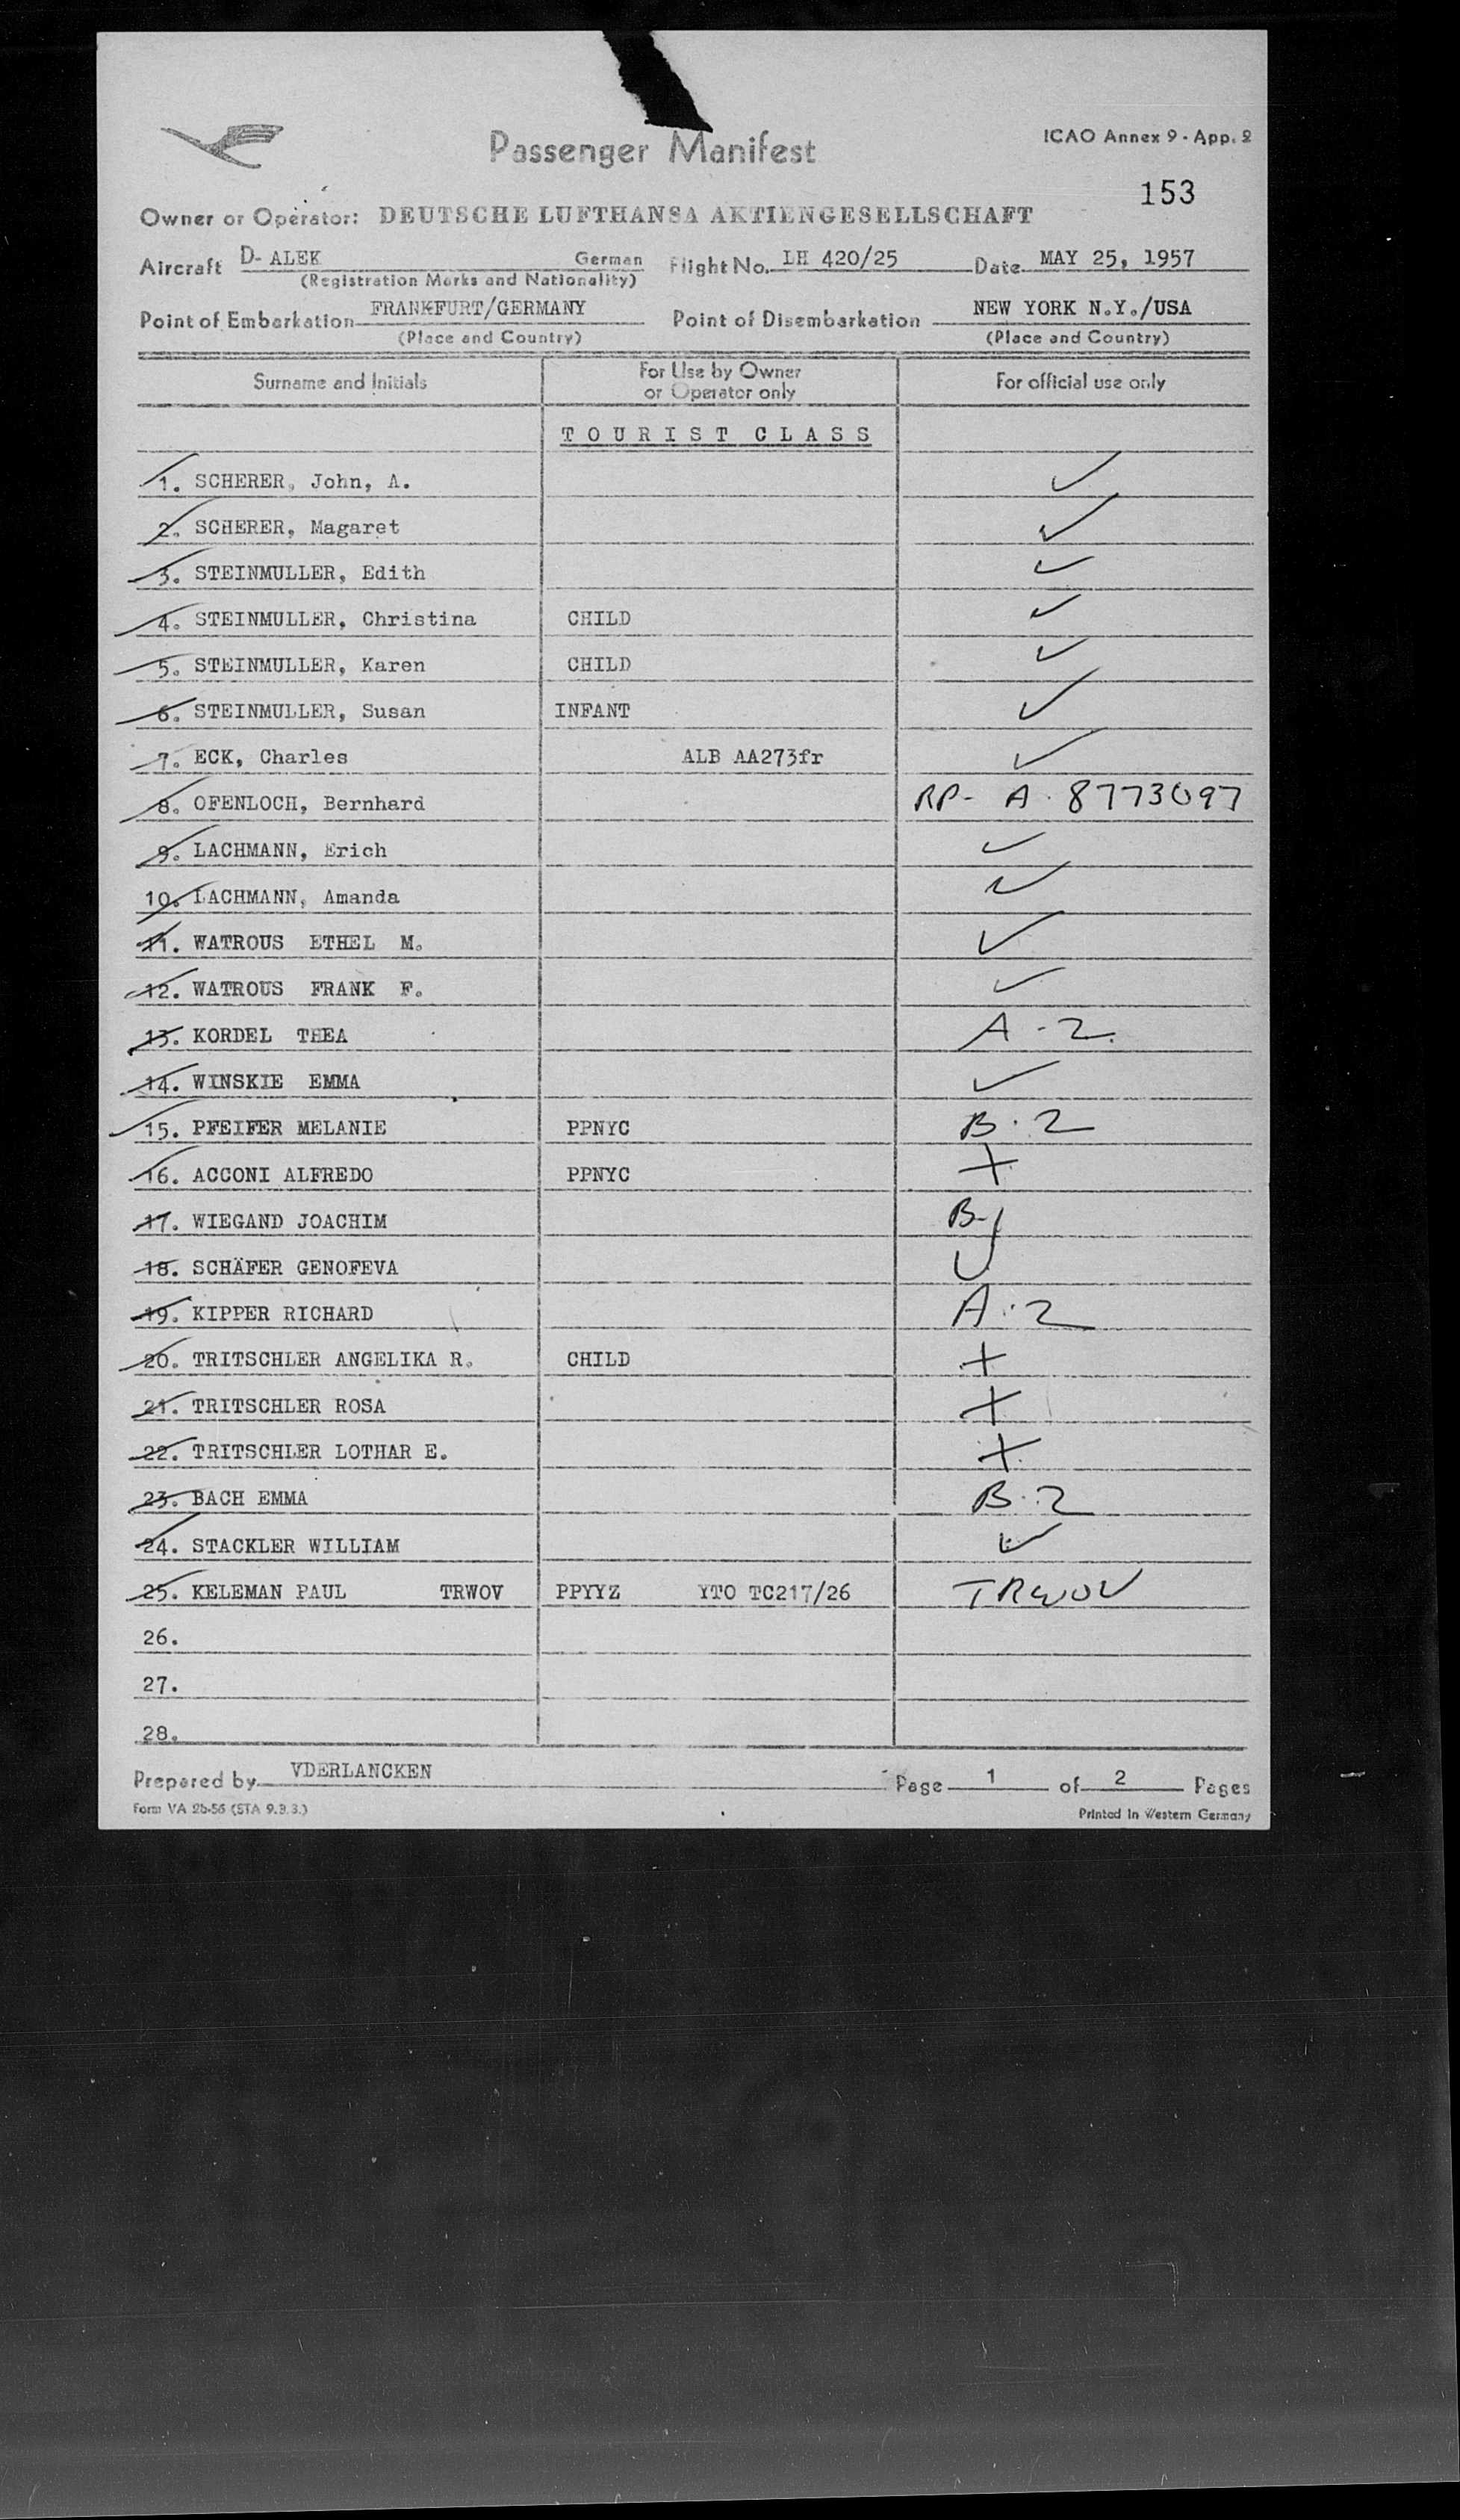 Passenger Manifest
ICAO Annex 9 - App. 2
153
Owner or Operator: DEUTSCHE LUFTHANSA AKTIENGESELLSCHAFT
Aircraft D- ALEK German Flight No. LH 420/25 Date MAY 25, 1957
(Registration Marks and Nationality)
Point of Embarkation FRANKFURT/GERMANY Point of Disembarkation NEW YORK N.Y./USA
(Place and Country) (Place and Country)
Surname and Initials For Use by Owner or Operator only For official use only
TOURIST CLASS
1. SCHERER, John, A. ✓
2. SCHERER, Magaret ✓
3. STEINMULLER, Edith ✓
4. STEINMULLER, Christina CHILD ✓
5. STEINMULLER, Karen CHILD ✓
6. STEINMULLER, Susan INFANT ✓
7. ECK, Charles ALB AA273fr ✓
8. OFENLOCH, Bernhard RP- A. 8773097
9. LACHMANN, Erich ✓
10. LACHMANN, Amanda ✓
11. WATROUS ETHEL M. ✓
12. WATROUS FRANK F. ✓
13. KORDEL THEA A-2
14. WINSKIE EMMA ✓
15. PFEIFER MELANIE PPNYC B.2
16. ACCONI ALFREDO PPNYC +
17. WIEGAND JOACHIM B-1
18. SCHÄFER GENOFEVA
19. KIPPER RICHARD A.2
20. TRITSCHLER ANGELIKA R. CHILD +
21. TRITSCHLER ROSA +
22. TRITSCHLER LOTHAR E. +
23. BACH EMMA B.2
24. STACKLER WILLIAM ✓
25. KELEMAN PAUL TRWOV PPYYZ YTO TC217/26 TRWOV
26.
27.
28.
Prepared by VDERLANCKEN Page 1 of 2 Pages
Form VA 2b-56 (STA 9.3.3.) Printed in Western Germany